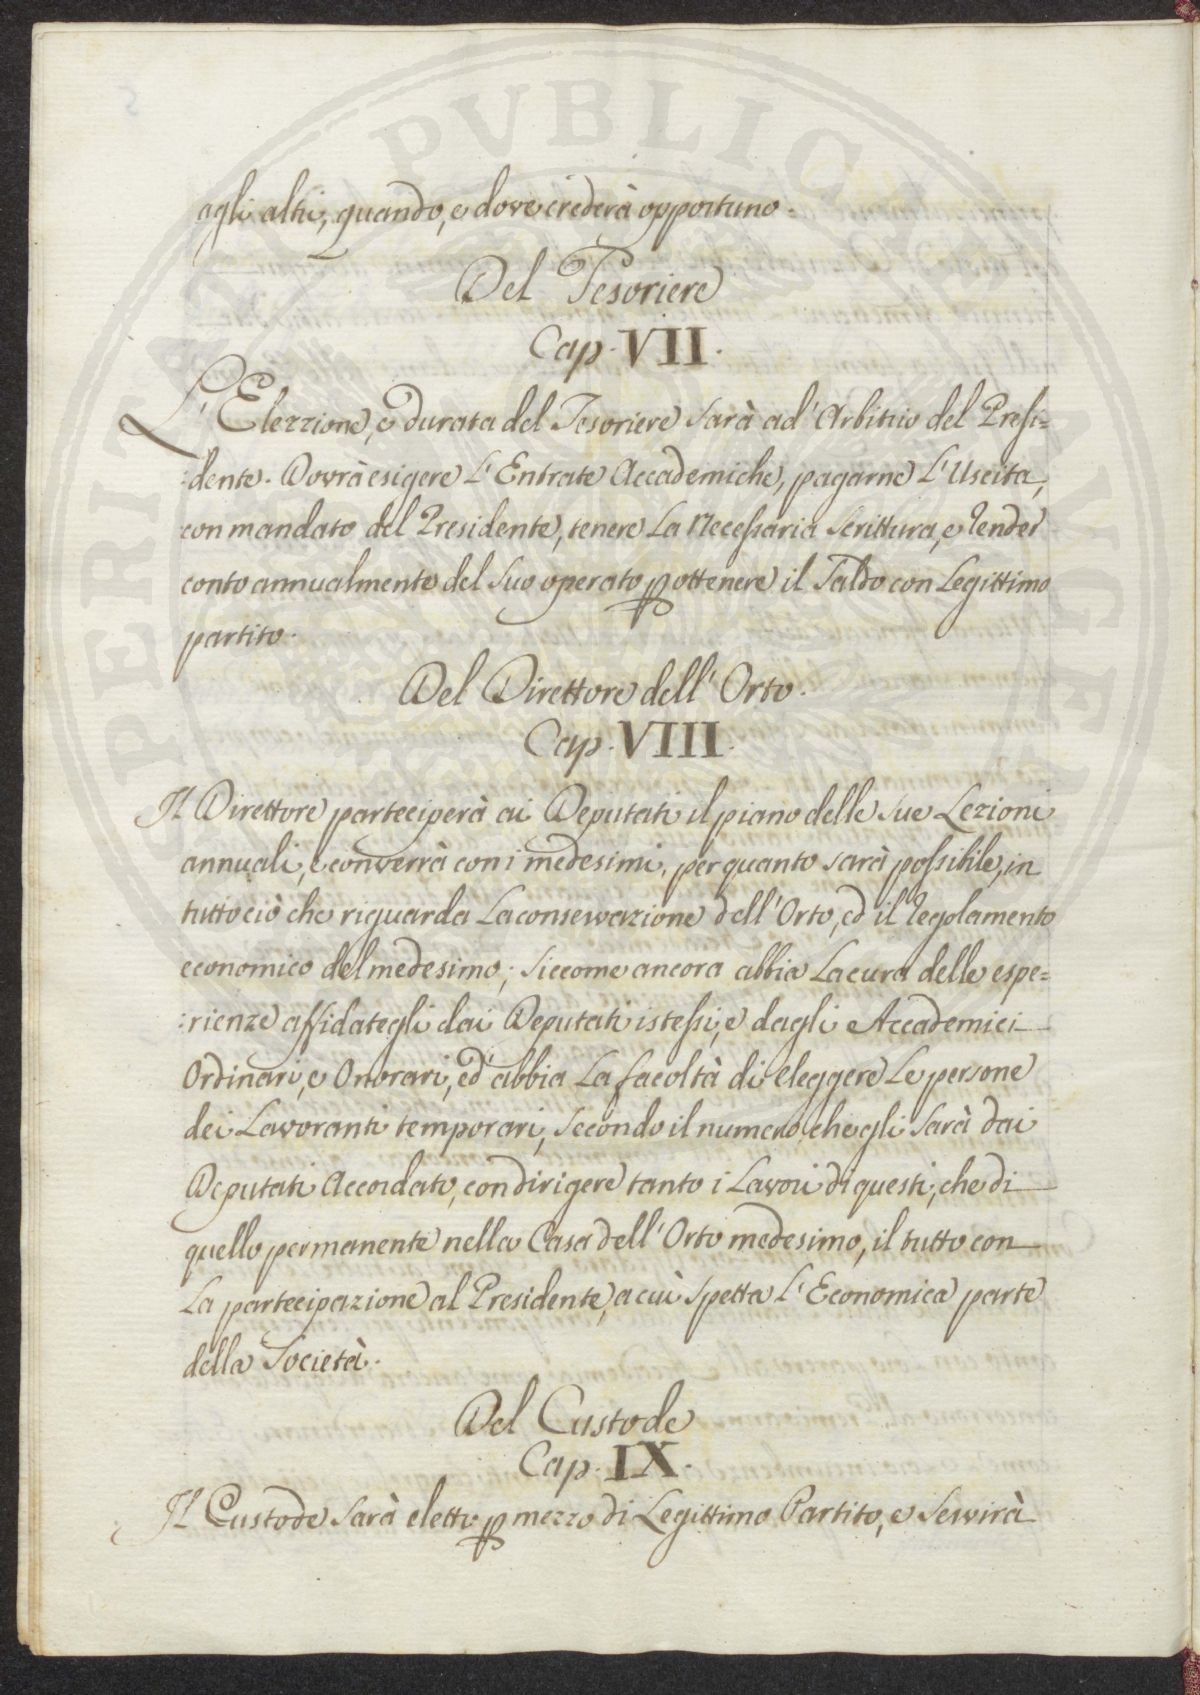 agli altri, quando, e dove crederà opportuno.
Del Tesoriere
Cap. VII.
L'Elezzione, e durata del Tesoriere sarà ad' Arbitrio del Presi=
:dente. Dovrà esigere L'Entrate Accademiche, pagarne L'Uscita,
con mandato del Presidente, tenere La Necessaria Scrittura, e render
conto annualmente del Suo operato p ottenere il Saldo con Legittimo
partito.
Del Direttore dell'Orto.
Cap. VIII.
Il Direttore parteciperà ai Deputati il piano delle Sue Lezioni
annuali, e converrà con i medesimi, per quanto sarà possibile, in
tutto ciò che riguarda La conservazione dell'Orto, ed il regolamento
economico del medesimo; Siccome ancora abbia La cura delle espe=
:rienze affidategli dai Deputati istessi, e dagli Accademici
Ordinari, e Onorari, ed' abbia La facoltà di eleggere Le persone
dei Lavoranti temporari, Secondo il numero, che gli Sarà dai
Deputati Accordato, con dirigere tanto i Lavori di questi, che di
quello permanente nella Casa dell'Orto medesimo, il tutto con
La partecipazione al Presidente, a cui Spetta L'Economica parte
della Società.
Del Custode
Cap. IX.
Il Custode Sarà eletto p mezzo di Legittimo Partito, e Servirà